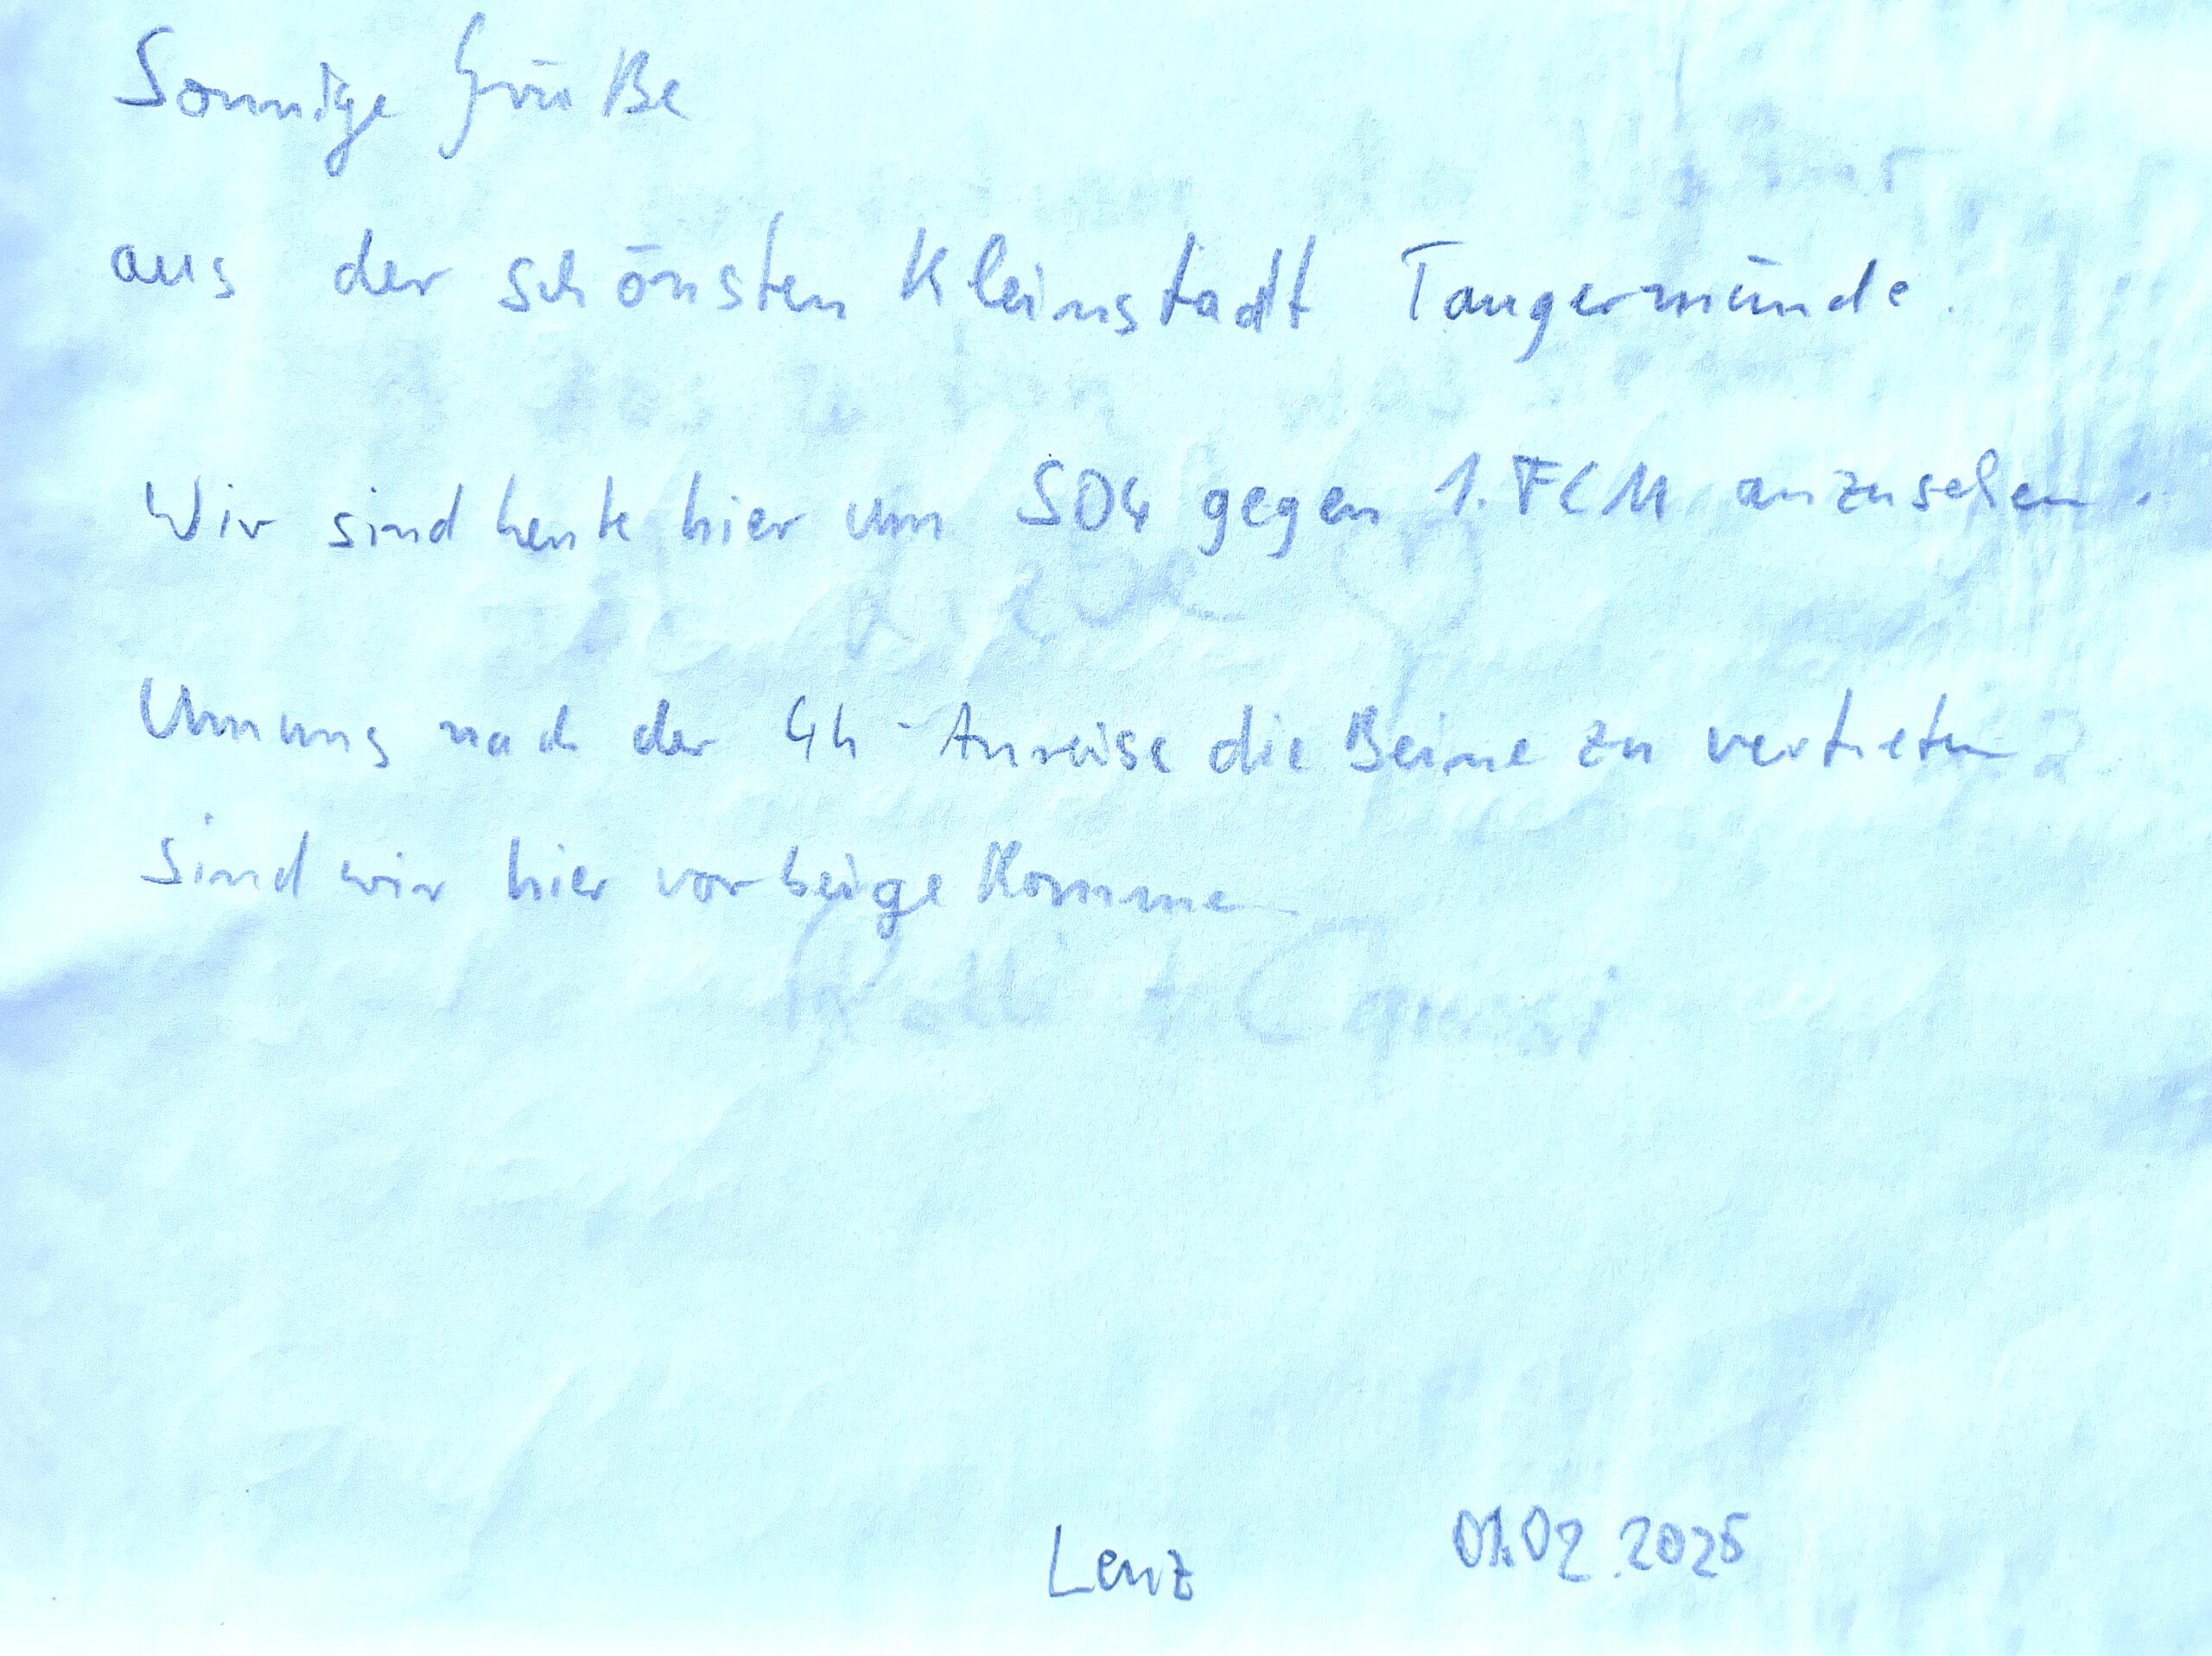 Sonnige Grüße
aus der schönsten Kleinstadt Tangermünde.
Wir sind heute hier um S04 gegen 1. FCM anzusehen.
Um uns nach der 4h-Anreise die Beine zu vertreten
sind wir hier vorbeigekommen
Lenz 01.02.2025